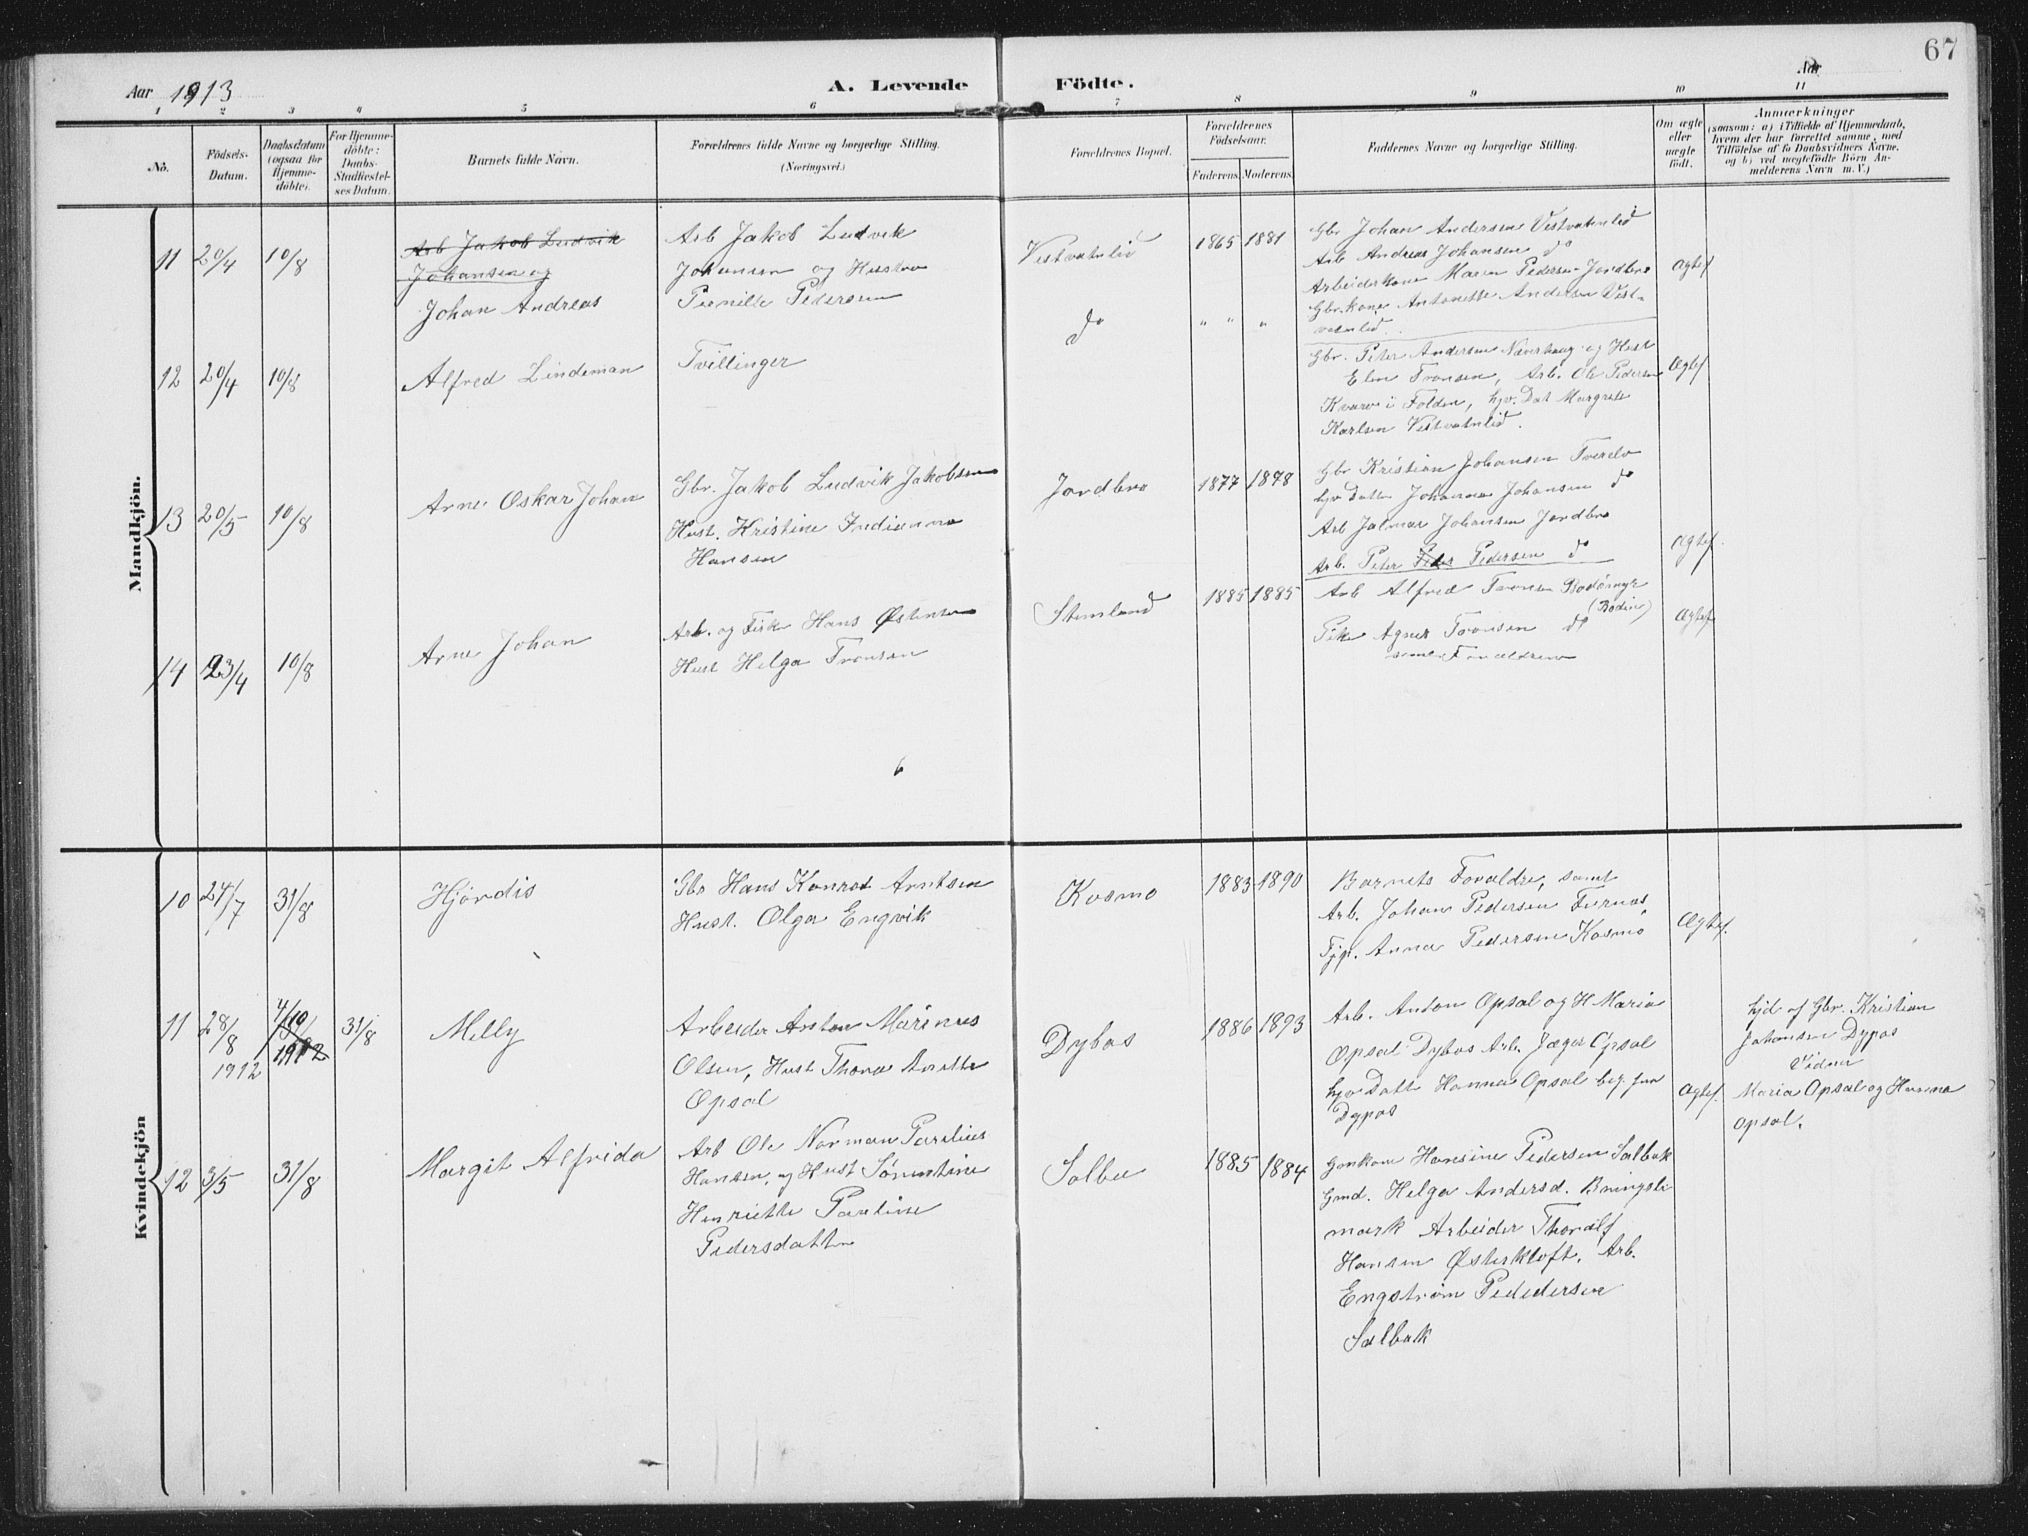 67
Aar 1913
A. Levende Födte.
Aar
1 2 3 4 5 6 7 8 9 10 11
No.
Födsels-
Datum.
Daabsdatum
(ogsaa for
Hjemme-
döbte).
For Hjemme-
döbte:
Daabs-
Stadfæstel-
ses Datum.
Barnets fulde Navn.
Forældrenes fulde Navne og borgerlige Stilling.
(Næringsvei.)
Forældrenes Bopæl.
Forældrenes
Födselsaar.
Faderens. Moderens.
Faddernes Navne og borgerlige Stilling.
Om ægte
eller
uægte
født.
Anmærkninger
(saasom: a) i Tilfælde af Hjemmedaab,
hvem der har forrettet samme, med
Tilföielse af to Daabsvidners Navne,
og b) ved uægtefödte Börn An-
melderens Navn m. V.)
Mandkjön.
11 20/4 10/8
Arb Jakob Ludvik
Johansen og
Johan Andreas
Arb Jakob Ludvik
Johansen og Hustru
Pernille Pedersen
Vestvatnlid
1865 1881
Gbr Johan Andersen Vestvatnlid
Arb Andreas Johansen do
Arbeiderkone Maren Pedersen Jordbro
Gbr.kone Antonette Andersen Vest-
vatnlid.
Ægtef
12 20/4 10/8
Alfred Lindeman
Tvillinger
do
" " "
Gbr. Peter Andersen Næverhaug og Hust
Elen Tronsen, Arb. Ole Pedersen
Kvarv i Folden, hjv. Dat Margrete
Karlsen Vestvatnlid.
Ægtef
13 20/5 10/8
Arne Oskar Johan
Gbr. Jakob Ludvik Jakobsen
Hust. Kristine
Hansen
Jordbro
1877 1878
Gbr Kristian Johansen Tverelv
hjv Datter Johanna Johansen do
Arb Jalmar Johansen Jordbro
Arb. Peter Pedersen do
Ægtef.
14 23/4 10/8
Arne Johan
Arb. og Fisker Hans Østensen
Hust Helga Tronsen
Stemland
1885 1885
Arb Alfred Tronsen Bodømyr
(Bodin)
Pike Agnes Tronsen do
samt Forældrene
Ægtef
Kvindekjön
10 27/7 31/8
Hjørdis
Gbr Hans Konrad Arntsen
Hust. Olga Engvik
Kosmo
1883 1890
Barnets Forældre, samt
Arb. Johan Pedersen Furnes,
Tjp. Anna Pedersen Kosmo
Ægtef.
11 28/8
1912
4/10
1912
31/8
Milly
Arbeider Anton Marinus
Olsen, Hust Thora Anette
Opsal
Dybos
1886 1893
Arb. Anton Opsal og H Maria
Opsal Dybos Arb. Jæger Opsal
hjv Datt Hanna Opsal beg. fra
Dypos
Ægtef.
hjd af Gbr. Kristian
Johansen Dypos
Vidner
Maria Opsal og Hanna
Opsal.
12 3/5 31/8
Margit Alfrida
Arb Ole Norman Parelius
Hansen, og Hust Sørentine
Henriette Pauline
Pedersdatter
Solbu
1885 1884
Hansine Pedersen Solbak
Gmd. Helga Andersd. Bringsli
mark Arbeider Thoralf
Hansen Østerkløft, Arb.
Engstrøm Pededersen
Solbak